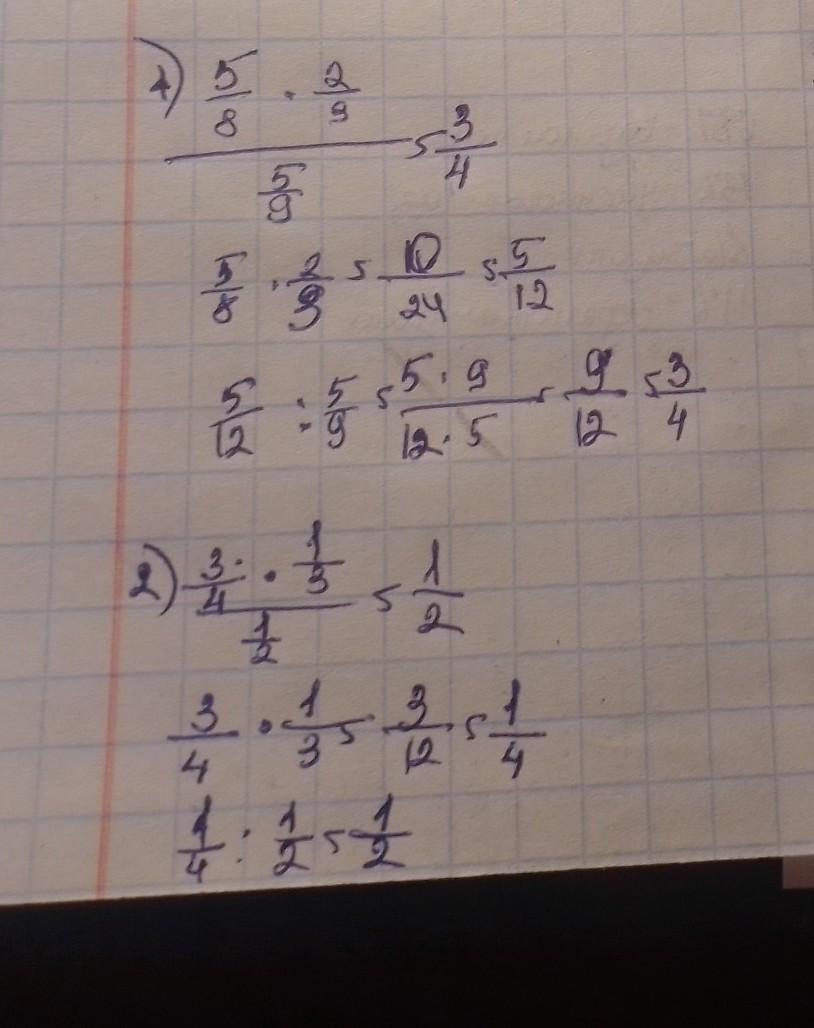 1) (5/8 · 2/3) / (5/9) = 3/4
5/8 · 2/3 = 10/24 = 5/12
5/12 : 5/9 = (5 · 9)/(12 · 5) = 9/12 = 3/4
2) (3/4 · 1/3) / (1/2) = 1/2
3/4 · 1/3 = 3/12 = 1/4
1/4 : 1/2 = 1/2